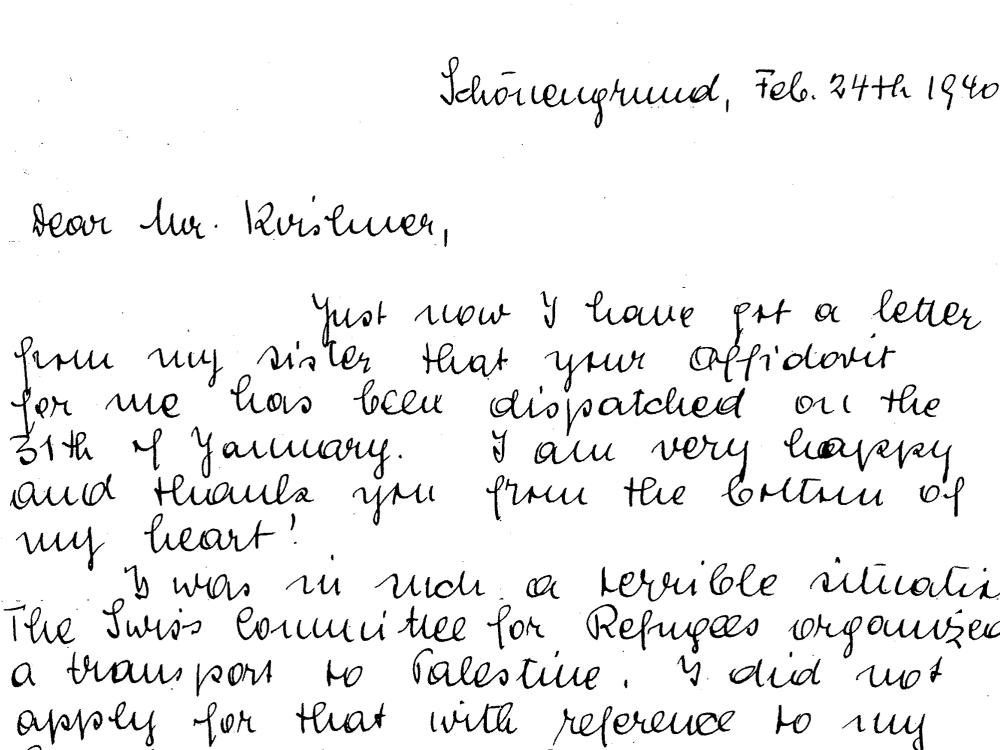 Schönengrund, Feb. 24th 1940
Dear Mr.
Just now I have got a letter
from my sister that your Affidavit
for me has been dispatched on the
31th of January. I am very happy
and thanks you from the bottom of
my heart!
I was in such a terrible situation
The Swiss Committee for Refugees organized
a transport to Palestine. I did not
apply for that with reference to my